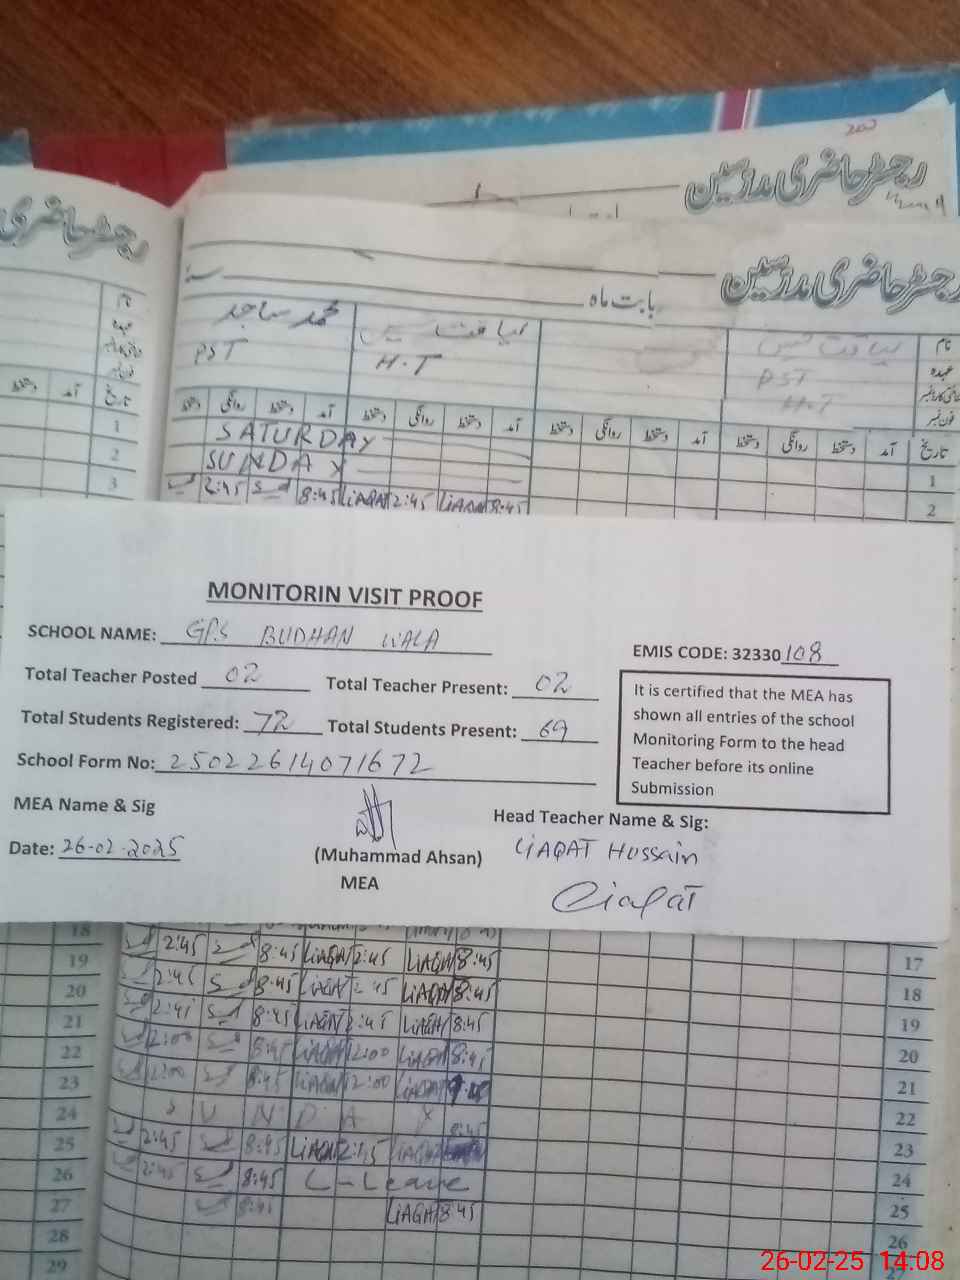 رجسٹر حاضری مدرسین
رجسٹر حاضری مدرسین
بابت ماہ
سنہ
نام
عہدہ
محمد ساجد
لیاقت حسین
لیاقت حسین
PST
H.T
PST
H.T
تاریخ آمد دستخط روانگی دستخط آمد دستخط روانگی دستخط آمد دستخط روانگی دستخط آمد دستخط روانگی دستخط
SATURDAY
SUNDAY
2:45 8:45 LIAQAT 2:45 LIAQAT 8:45
1
2
3
1
2
MONITORIN VISIT PROOF
SCHOOL NAME: GPS BUDHAN WALA
EMIS CODE: 32330108
Total Teacher Posted 02 Total Teacher Present: 02
Total Students Registered: 72 Total Students Present: 69
School Form No: 25022614071672
It is certified that the MEA has
shown all entries of the school
Monitoring Form to the head
Teacher before its online
Submission
MEA Name & Sig
Head Teacher Name & Sig:
LIAQAT HUSSAIN
Date: 26-02-2025
(Muhammad Ahsan)
MEA
Liaqat
18
19 2:45 8:45 LIAQAT 2:45 LIAQAT 8:45 17
20 2:45 8:45 LIAQAT 2:45 LIAQAT 8:45 18
21 2:45 8:45 LIAQAT 2:45 LIAQAT 8:45 19
22 2:00 8:45 LIAQAT 12:00 LIAQAT 8:45 20
23 12:00 8:45 LIAQAT 12:00 LIAQAT 21
24 SUNDAY 22
25 2:45 8:45 LIAQAT 2:45 LIAQAT 8:45 23
26 2:45 8:45 L-Leave 24
27 8:45 LIAQAT 8:45 25
28 26
29
26-02-25 14.08